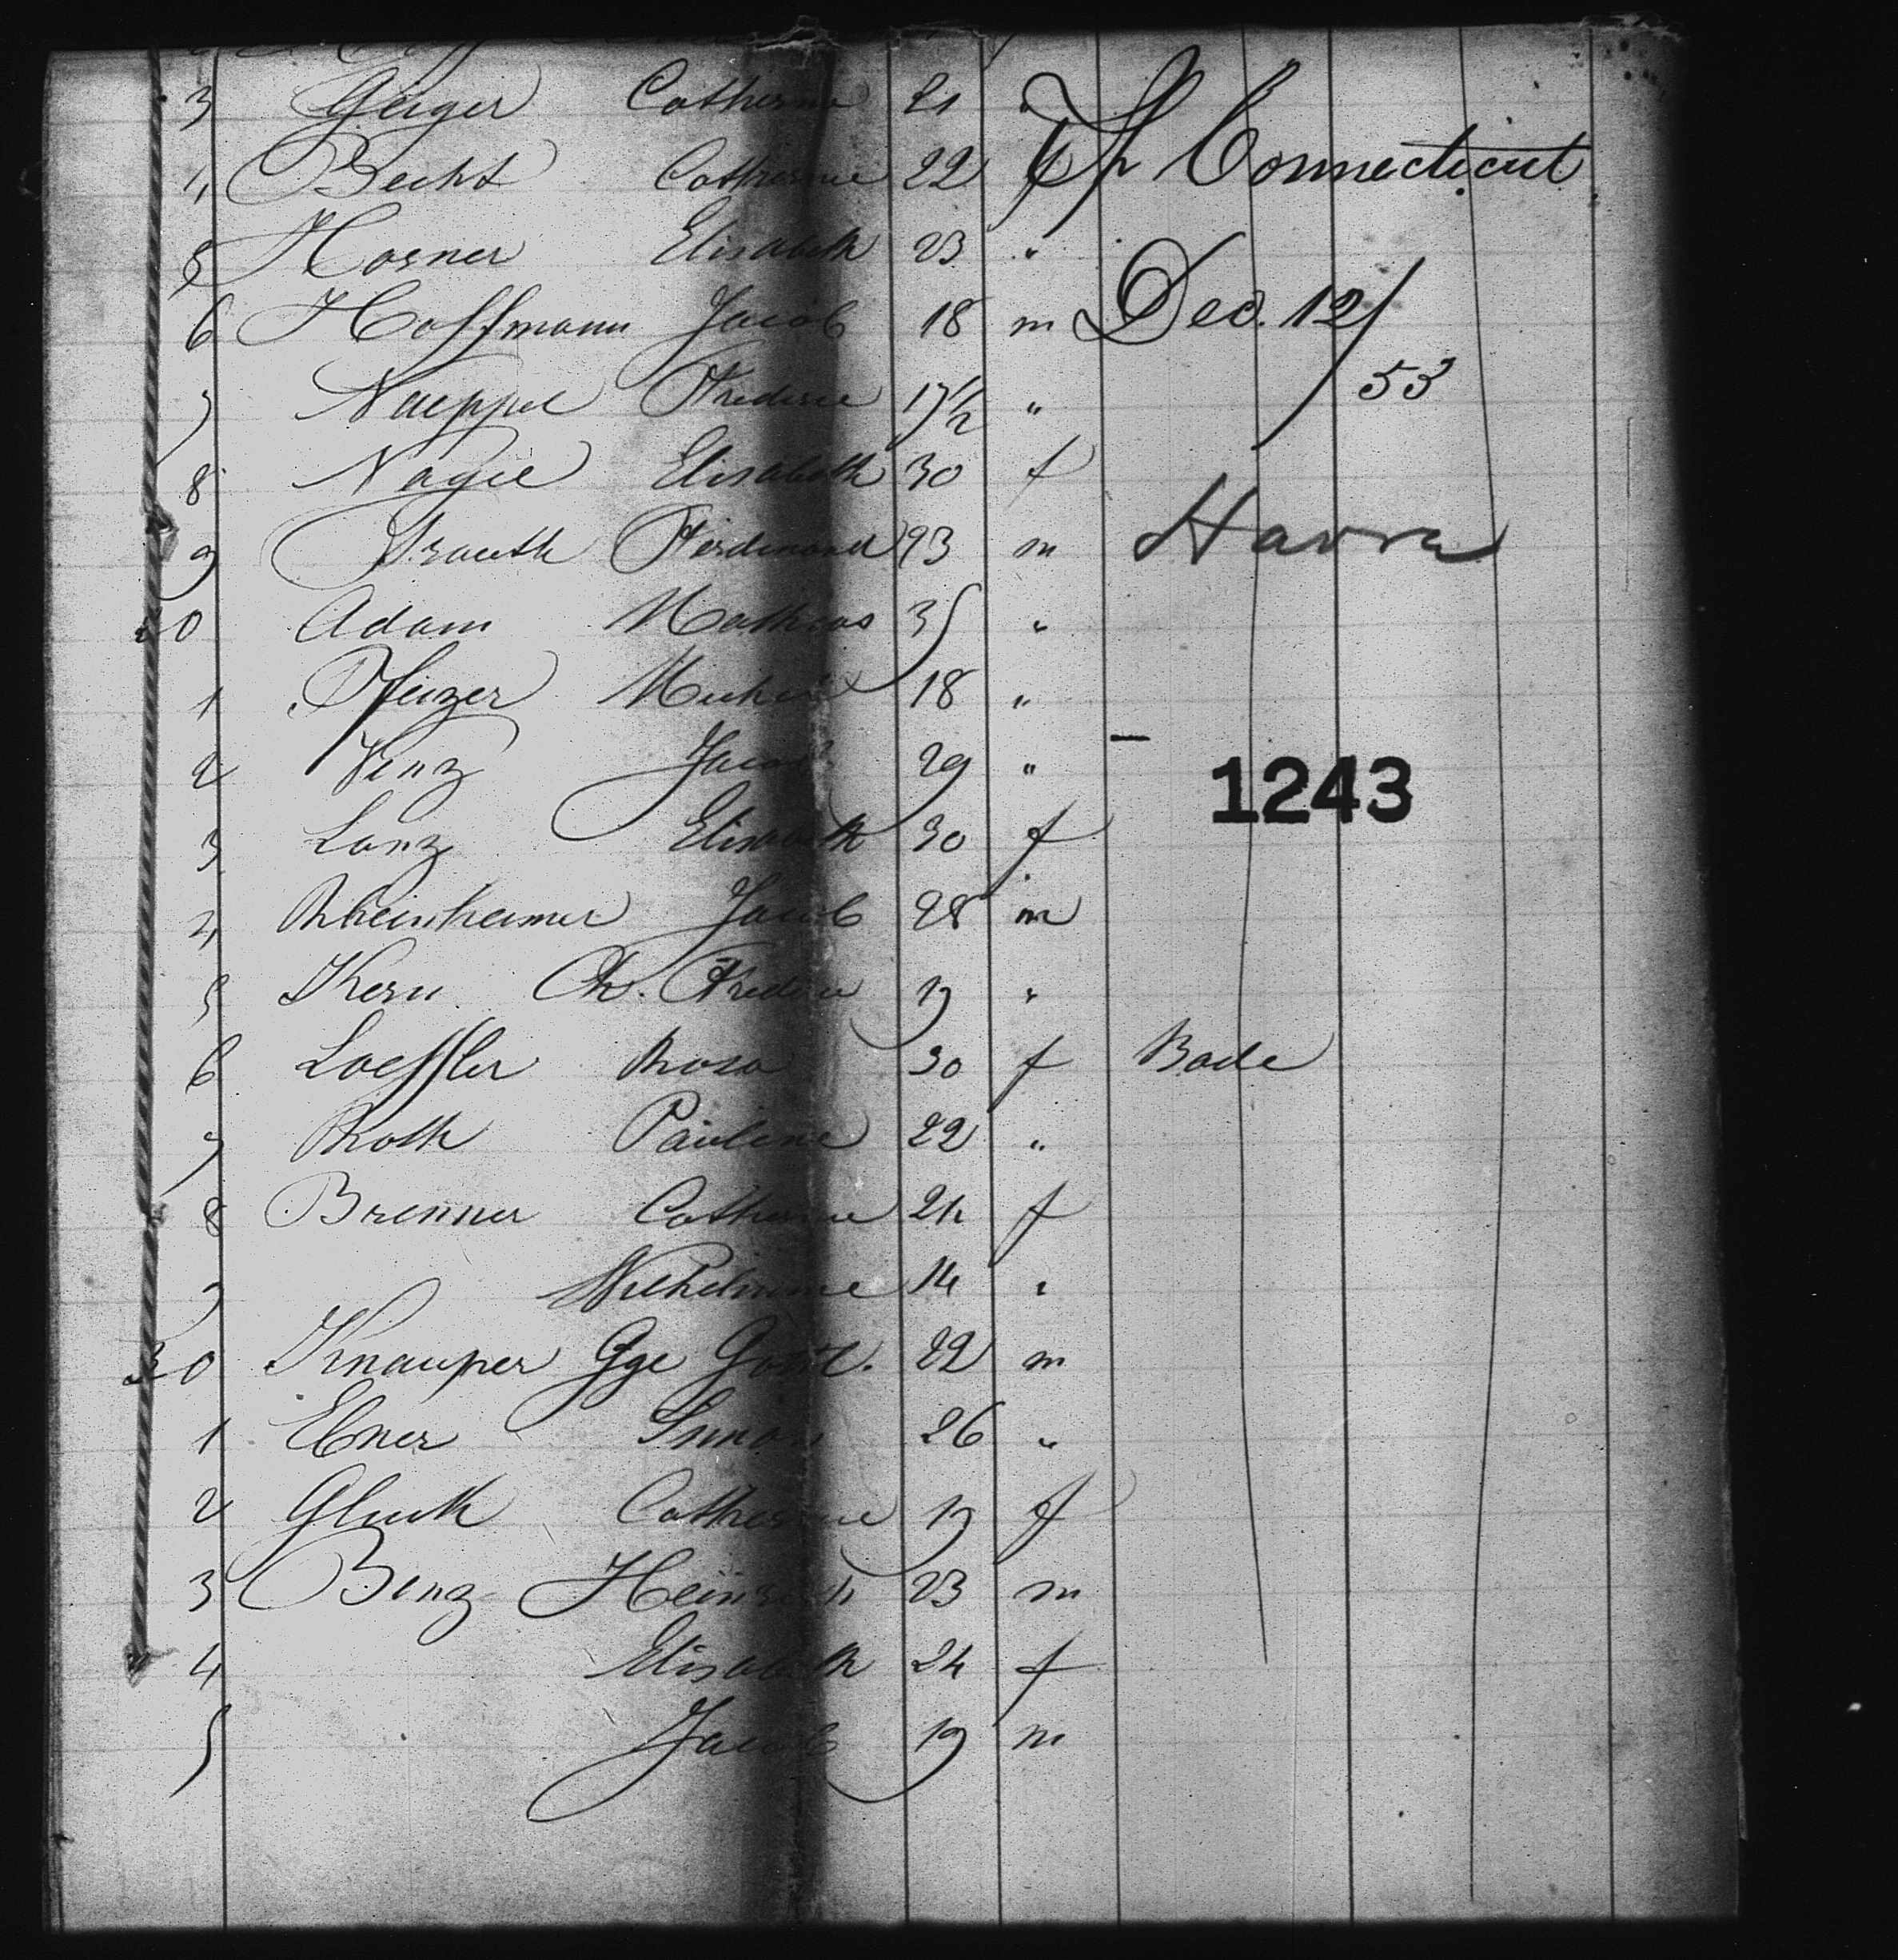 3 Geiger Catherine 21 "
4 Becht Catherine 22 "
5 Horner Elisabeth 23 "
6 Hoffmann Jacob 18 m
7 Naeppel Frederic 17 1/2 "
8 Nagel Elisabeth 30 f
9 Ferdinand 23 m
20 Adam Mathias 35 "
1 Pfeizer Michel 18 "
2 Venz Jacob 29 "
3 Lanz Elisabeth 30 f
4 Rheinheimer Jacob 28 m
5 Kern Ch. Frederic 19 "
6 Loeffler Rosa 30 f Bade
7 Roth Pauline 22 "
8 Brenner Catherine 24 f
9 Wilhelmine 14 "
30 Knauper Gge Gottl. 22 m
1 Ebner Simon 26 "
2 Gluck Catherine 19 f
3 Benz Heinrich 23 m
4 Elisabeth 24 f
5 Jacob 19 m
Sh Connecticut
Dec. 12/53
Havre
1243